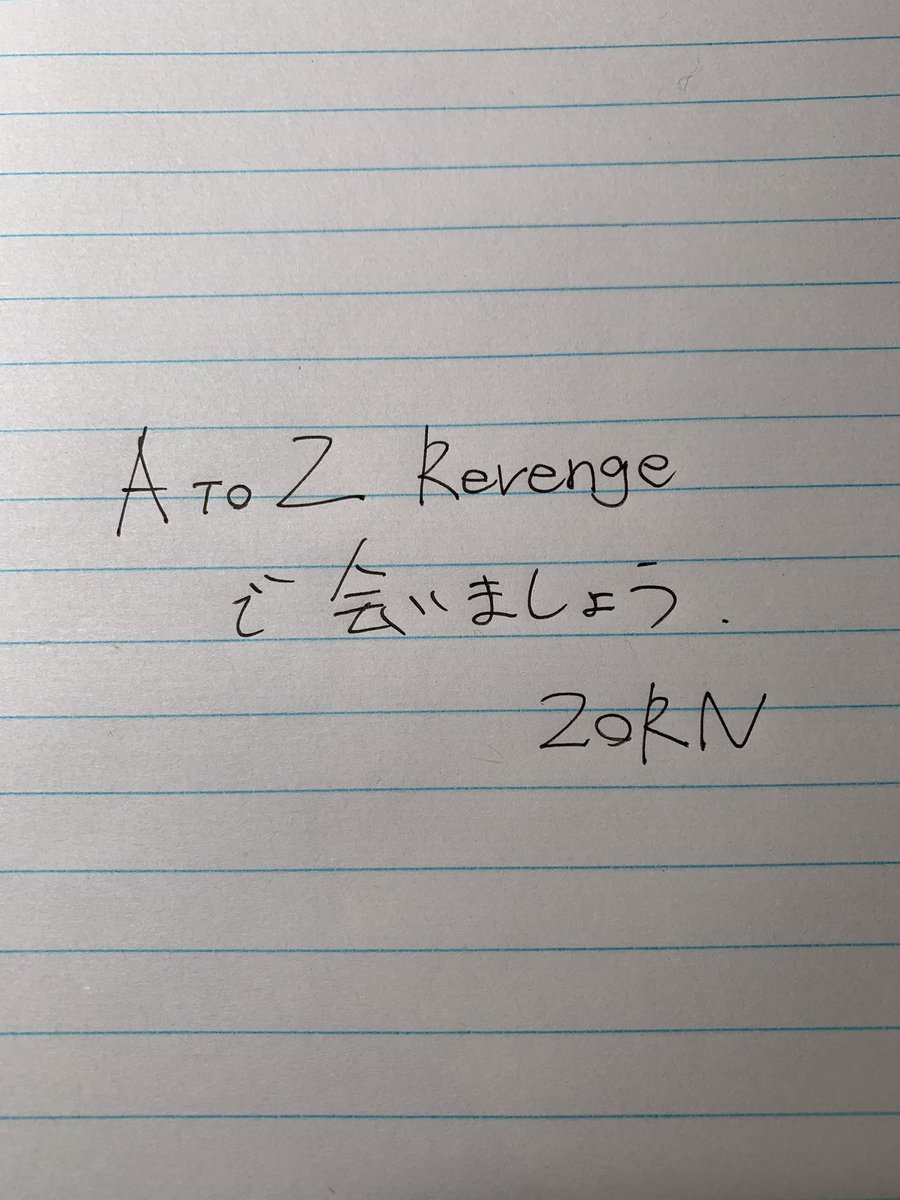 A TO Z Revenge
で会いましょう.
ZORN